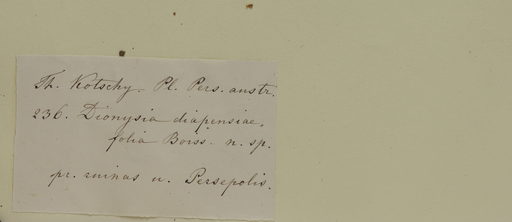 Th. Kotschy. Pl. Pers. austr.
236. Dionysia diapensiae,
folia Boiss. n. sp.
pr. ruinas u. Persepolis.